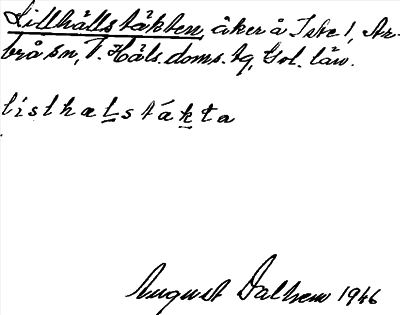 Lillhällstäkten, åker å Iste 1, Ar-
brå sn, V. Häls. doms. tg, Gvl. län.
listhalstákta
August Dalhem 1946